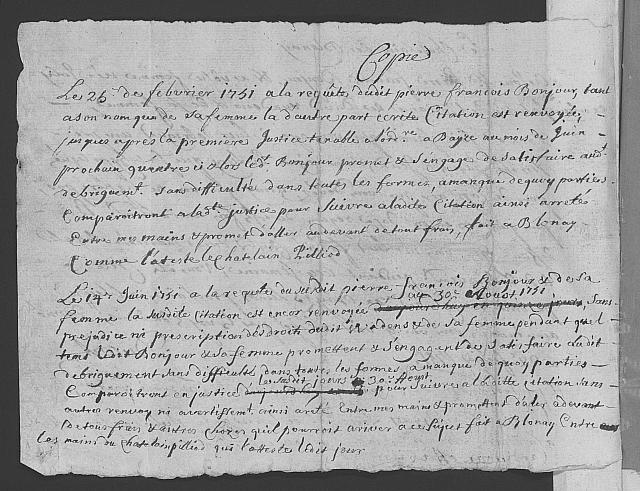 Copie
Le 25.e de febvrier 1751 a la requête dudit pierre François Bonjour, tant
a son nom que de sa femme la d'autre part ecrite Citation est renvoyée,
jusques après la premiere Justice tenable a l'ord.re a Bayse au mois de Juin
prochain quentre ci & lors led.t Bonjour promet & s'engage de satisfaire aud.t
debriguem.t sans difficulté dans toutes les formes, a manque de quoy parties
Comparoitront a lad.te justice pour suivre aladite Citation ainsi arreté
Entre mes mains & promet d'aller audevant de tout frais, fait a Blonay
Comme l'ateste le Chatelain Pilliod
Le 14.e Juin 1751 a la requête du susdit pierre François Bonjour & de sa
au 30.e Aoust 1751
femme la susdite Citation est encor renvoyée Sans
prejudice ni prescription des droits dudit & de sa femme pendant quel
tems ledit Bonjour & sa femme promettent & s'engagent de satisfaire audit
debriguement sans difficulté, dans toutes les formes, a manque de quoy parties
le susdit jour 30.e Aoust
Comparoitront en justice pour suivre a laditte citation sans
autres renvoy ni avertissem.t ainsi areté Entre mes mains & promettent daler adevant
de tous frais & autres choses qu'il pourroit ariver a ce sujet fait a Blonay Entre
les mains du Chatelain pilliod qui l'atteste ledit jour